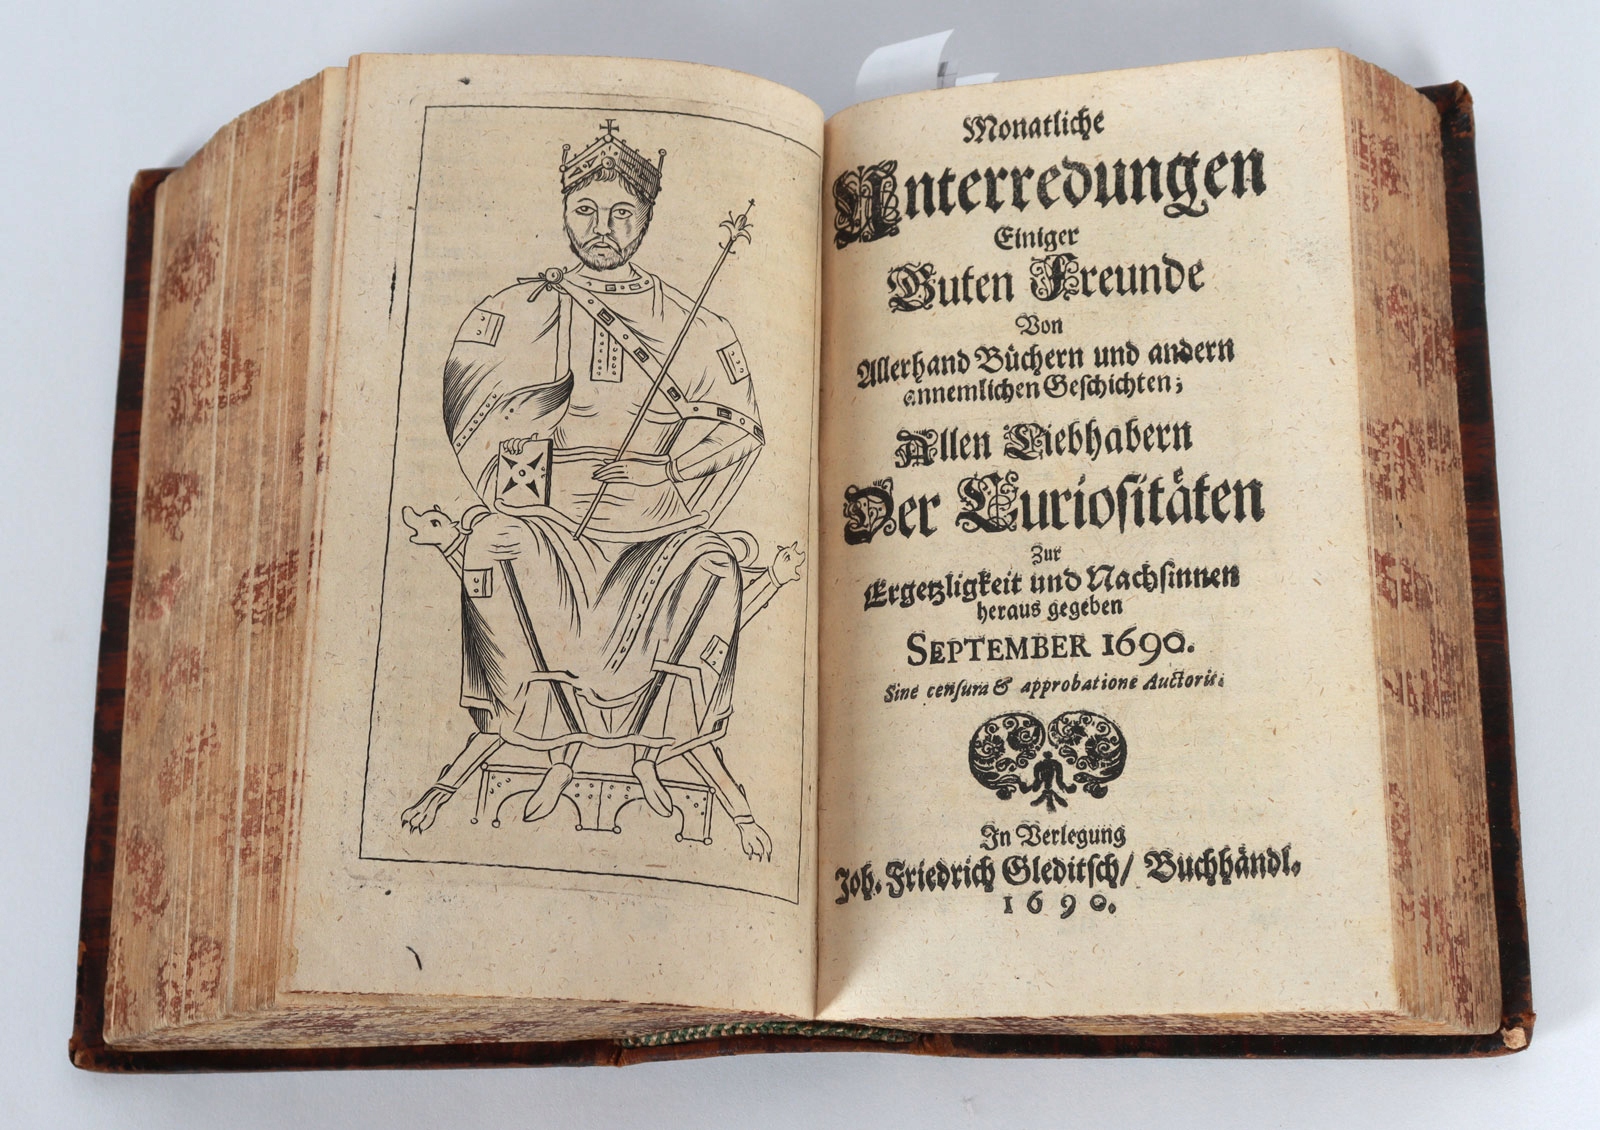 Monatliche
Unterredungen
Einiger
Guten Freunde
Von
Allerhand Büchern und andern
annemlichen Geschichten;
Allen Liebhabern
Der Curiositäten
Zur
Ergetzligkeit und Nachsinnen
heraus gegeben
SEPTEMBER 1690.
Sine censura & approbatione Auctoris.
In Verlegung
Joh. Friedrich Gleditsch/ Buchhändl.
1690.